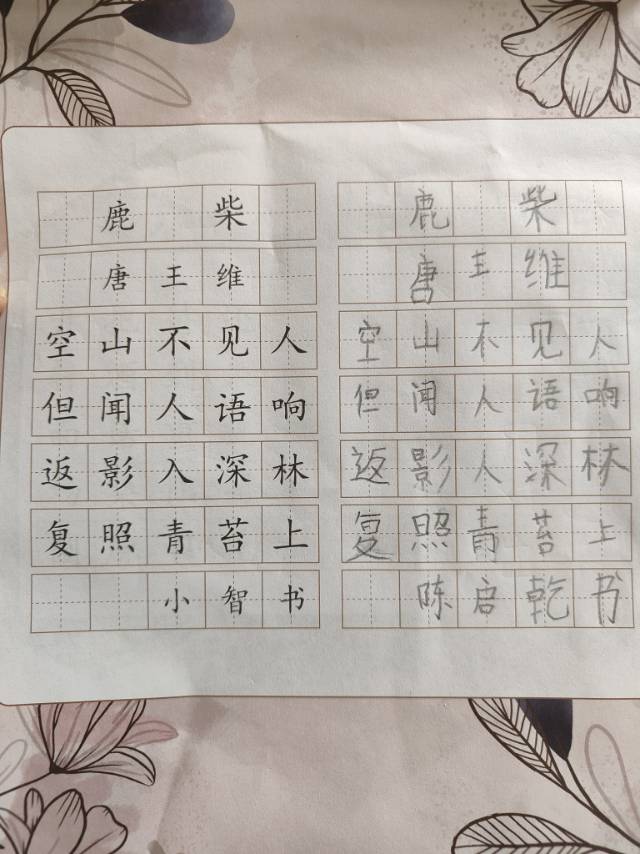 鹿柴
唐王维
空山不见人
但闻人语响
返影入深林
复照青苔上
小智书
鹿柴
唐王维
空山不见人
但闻人语响
返影人深林
复照青苔上
陈启乾书